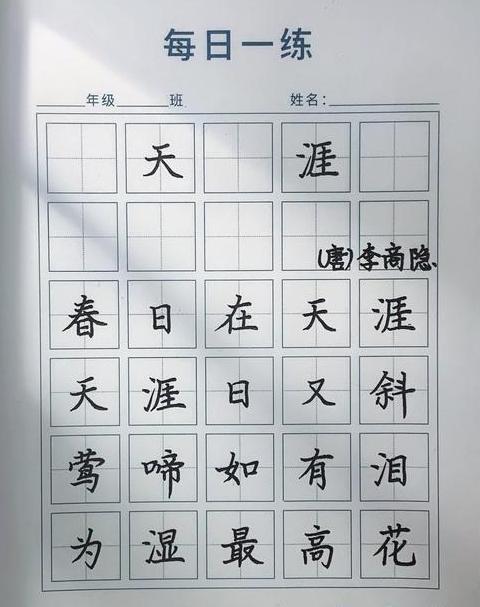 每日一练
年级 班 姓名:
天涯
(唐)李商隐
春日在天涯
天涯日又斜
莺啼如有泪
为湿最高花